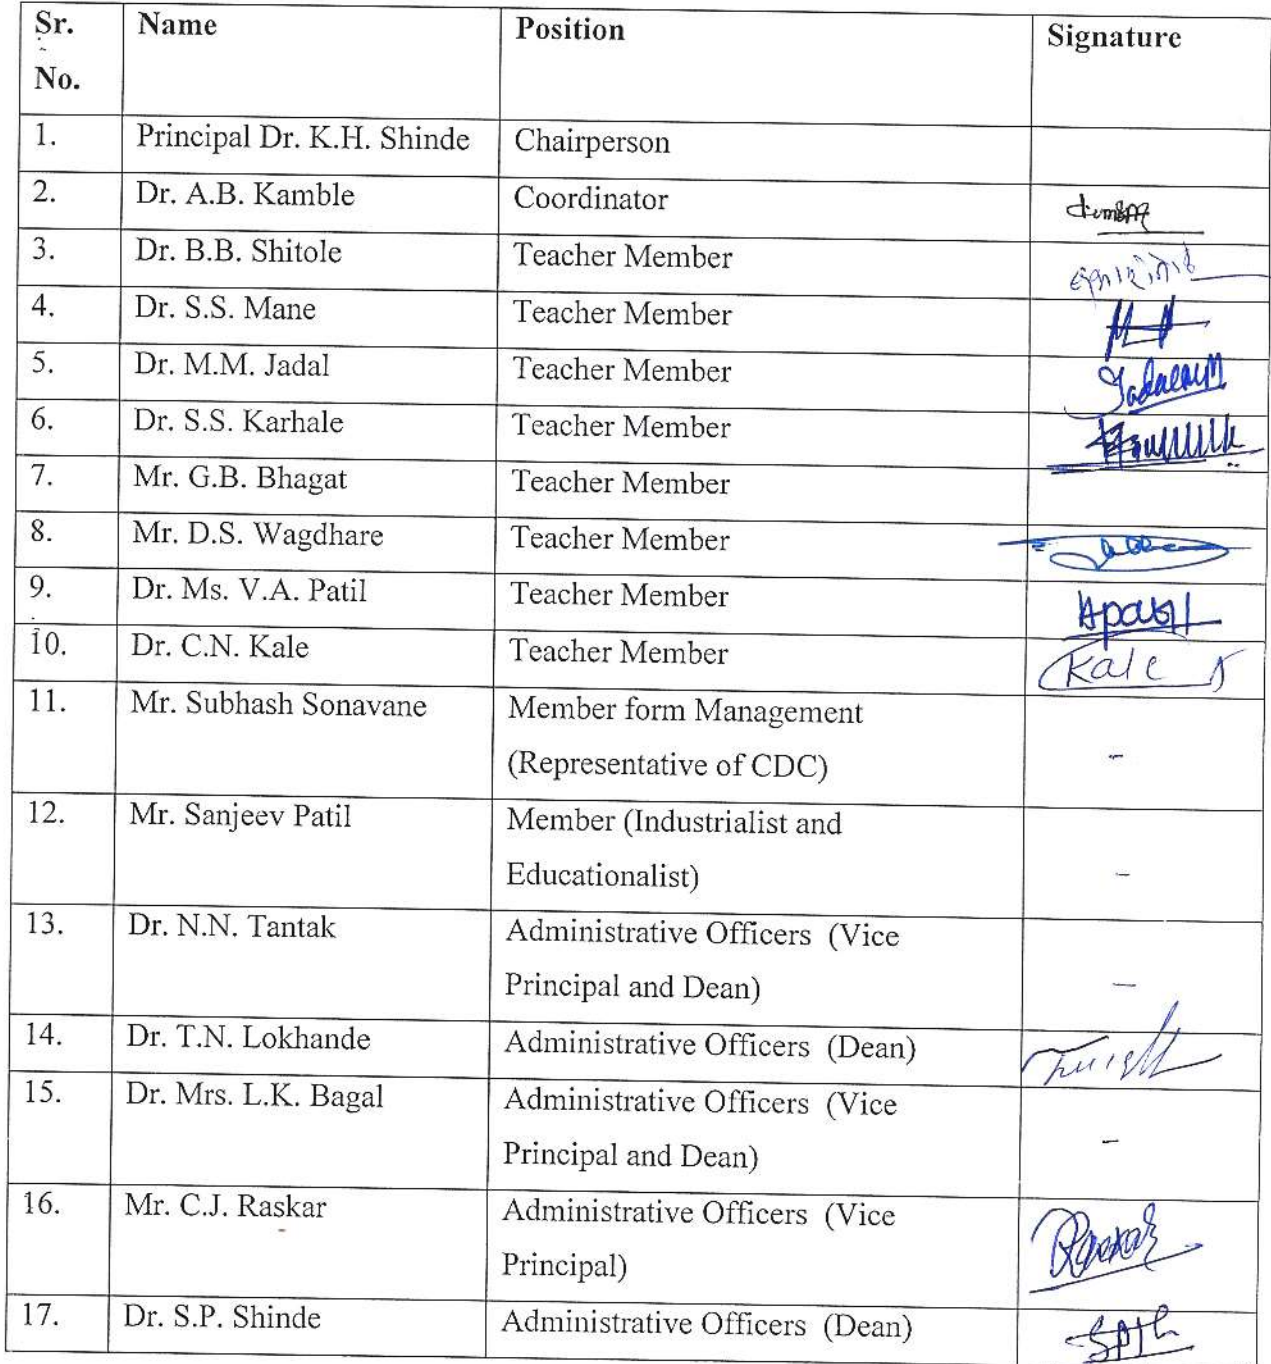 Sr. No. Name Position Signature
1. Principal Dr. K.H. Shinde Chairperson
2. Dr. A.B. Kamble Coordinator
3. Dr. B.B. Shitole Teacher Member
4. Dr. S.S. Mane Teacher Member
5. Dr. M.M. Jadal Teacher Member
6. Dr. S.S. Karhale Teacher Member
7. Mr. G.B. Bhagat Teacher Member
8. Mr. D.S. Wagdhare Teacher Member
9. Dr. Ms. V.A. Patil Teacher Member
10. Dr. C.N. Kale Teacher Member Kale
11. Mr. Subhash Sonavane Member form Management
(Representative of CDC) -
12. Mr. Sanjeev Patil Member (Industrialist and
Educationalist) -
13. Dr. N.N. Tantak Administrative Officers (Vice
Principal and Dean) -
14. Dr. T.N. Lokhande Administrative Officers (Dean)
15. Dr. Mrs. L.K. Bagal Administrative Officers (Vice
Principal and Dean) -
16. Mr. C.J. Raskar Administrative Officers (Vice
Principal)
17. Dr. S.P. Shinde Administrative Officers (Dean)